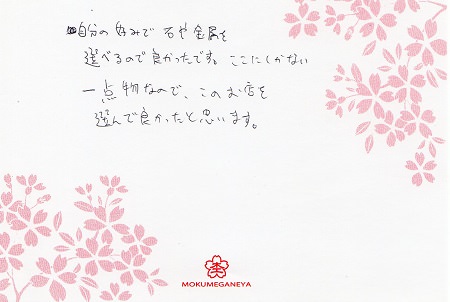 自分の好みで石や金属を
選べるので良かったです。ここにしかない
一点物なので、このお店を
選んで良かったと思います。
MOKUMEGANEYA